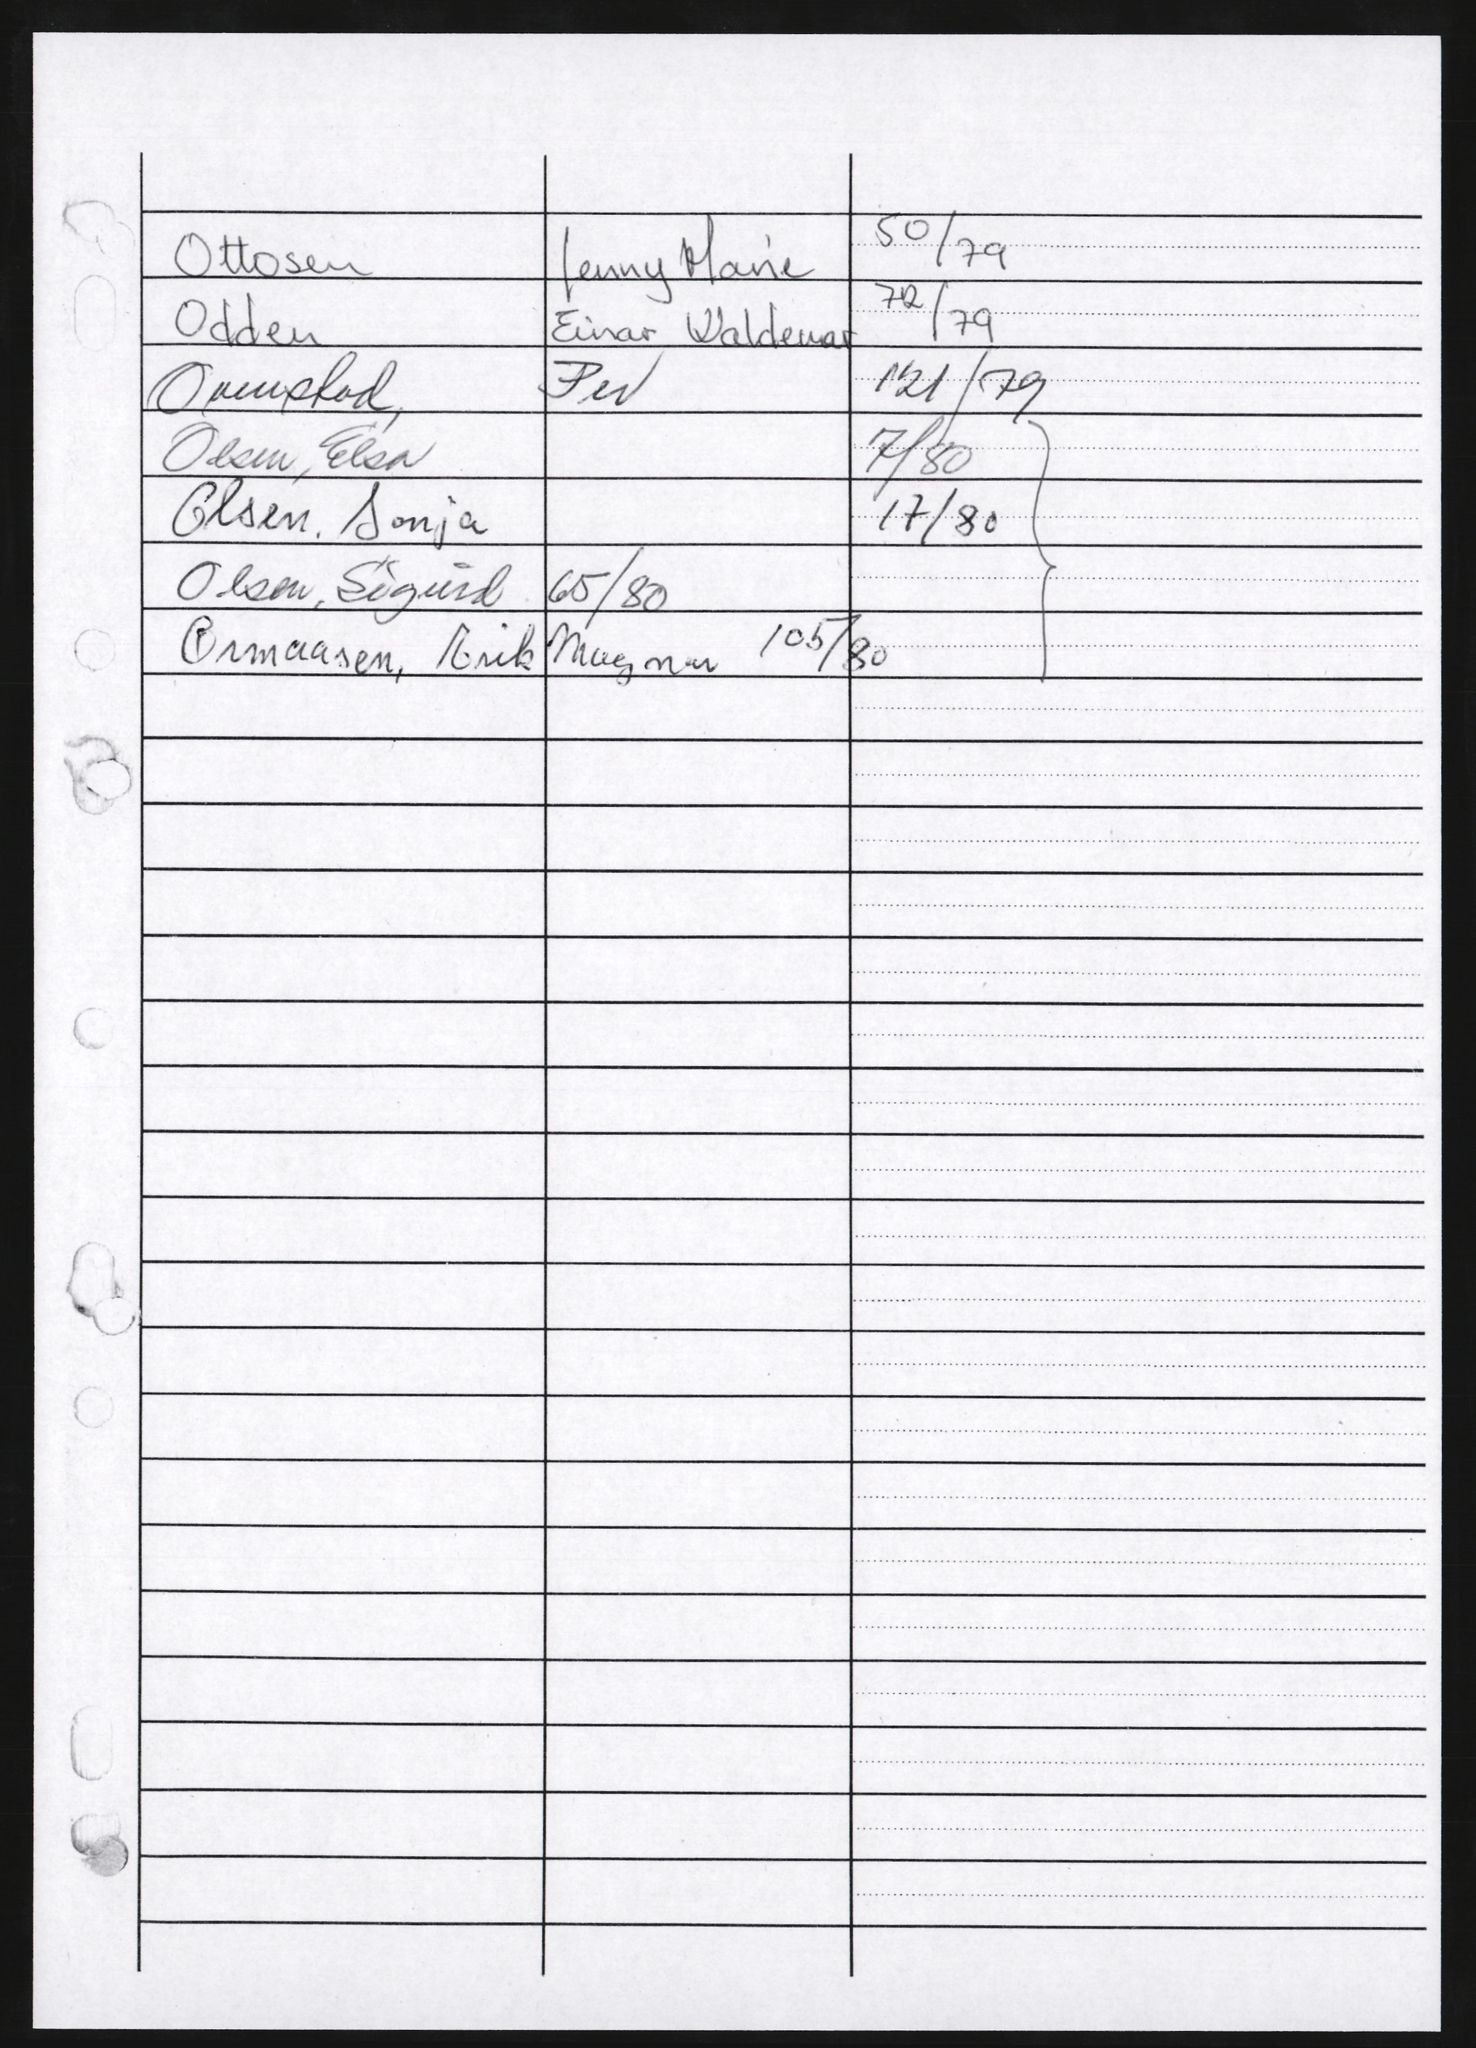 Ottosen Jenny Marie 50/79
Odden Einar Waldemar 72/79
Per 121/79
Olsen, Elsa 7/80
Olsen, Sonja 17/80
Olsen, Sigurd 65/80
Ormaasen, Erik Magnar 105/80